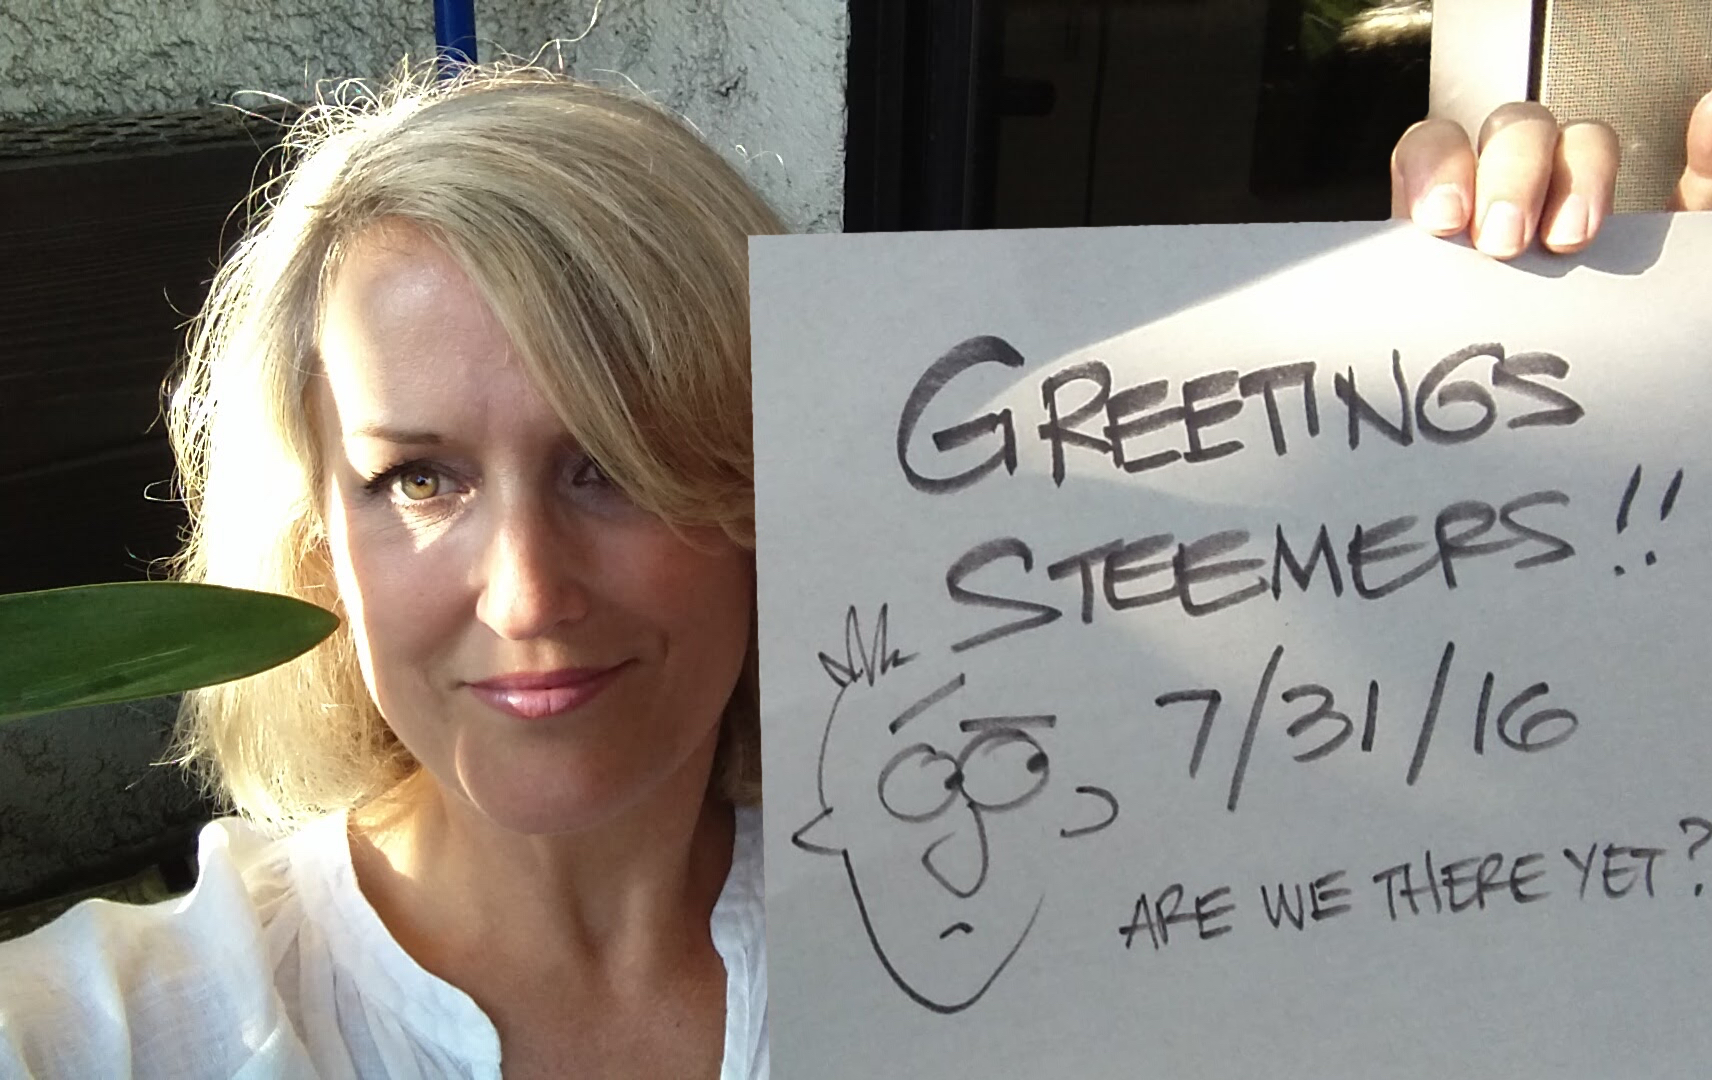 GREETINGS
STEEMERS!!
7/31/16
ARE WE THERE YET?